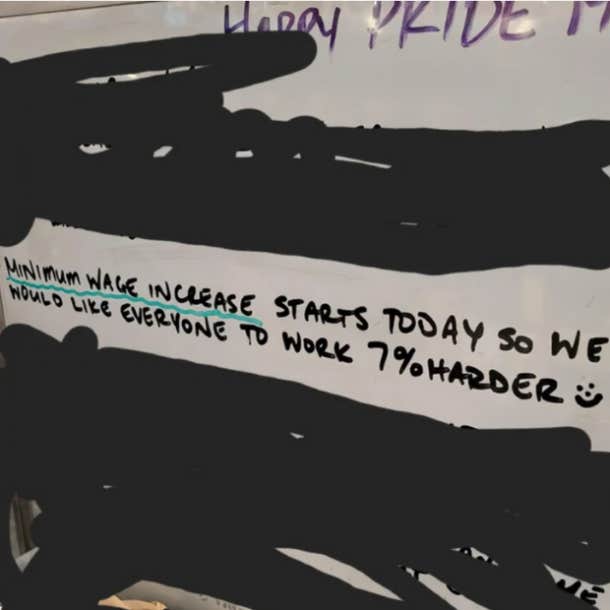 Happy PRIDE M
MINIMUM WAGE INCREASE STARTS TODAY SO WE
WOULD LIKE EVERYONE TO WORK 7% HARDER